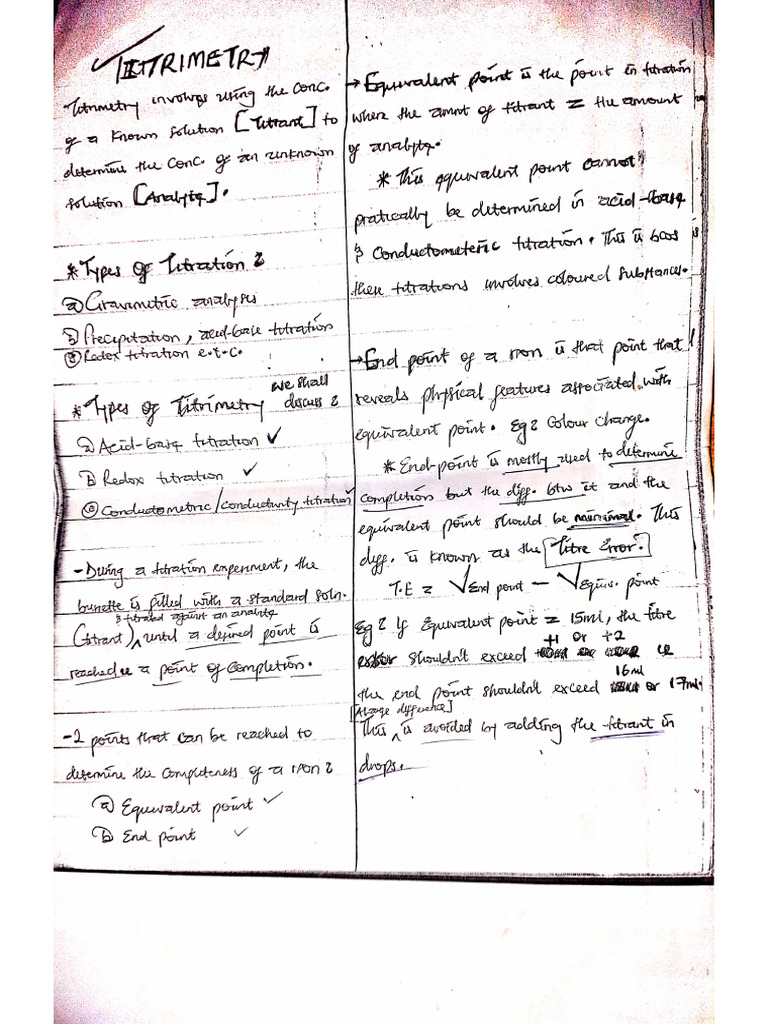 TITRIMETRY
Titrimetry involves using the conc.
of a known solution [Titrant] to
determine the conc. of an unknown
solution [Analyte].
* Types of Titration :
a) Gravimetric analysis
b) Precipitation, acid-base titration
c) Redox titration e.t.c.
* Types of Titrimetry we shall discuss :
a) Acid-base titration ✓
b) Redox titration ✓
c) Conductometric/conductivity titration ✓
- During a titration experiment, the
burette is filled with a standard soln.
& titrated against an analyte
(titrant) ^ until a desired point is
reached i.e a point of completion.
- 2 points that can be reached to
determine the completeness of a rxn :
a) Equivalent point ✓
b) End point ✓
→ Equivalent point is the point in titration
where the amnt of titrant = the amount
of analyte.
* This equivalent point cannot
pratically be determined in acid-base
& conductometeric titration. This is bcos
these titrations involves coloured substances.
→ End point of a rxn is that point that
reveals physical features associated with
equivalent point. Eg : Colour change.
* End-point is mostly used to determine
completion but the diff. btw it and the
equivalent point should be minimal. This
diff. is known as the Titre Error.
T.E = V End point - V Equiv. point
Eg : If Equivalent point = 15ml, the titre
+1 or +2
error shouldn't exceed i.e
16ml
the end point shouldn't exceed or 17ml.
[A large difference]
This ^ is avoided by adding the titrant in
drops.